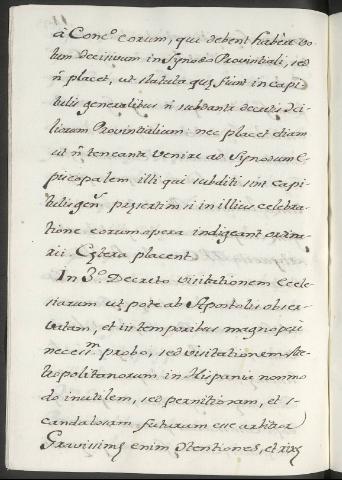 à Conc.º eorum, qui debent habere vo-
tum decisivum in Synodo Provintiali, sed
ñ placet, ut statuta quȩ fiunt in capi-
tulis generalibus ñ subdantur decretis
liorum Provintialium: nec placet etiam
ut ñ teneantur venire ad Synodum E-
piscopalem illi qui subditi sint capi-
tulis gen. pȩsertim si in illius celebra-
tione eorum opera indigeant ordina-
rii. Cȩtera placent.
In 3.º Decreto visitationem Eccle-
siarum utpote ab Apostolis obser-
vatam, et istis temporibus magnopere
necess.m probo, sed visitationem Me-
tropolitanorum in Hispania nonmo-
do inutilem, sed pernitiosam, et s-
candalosam futuram esse arbitror
Gravissimȩ enim Contentiones, et rixȩ